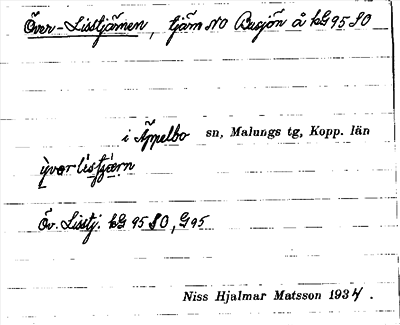 Över-Lisstjärnen, tjärn NO Busjön å kG 95 SO
i Äppelbo sn, Malungs tg, Kopp. län
ỳvər lis̀tjæ̀rn
Öv. Lisstj. kG 95 SO, G 95
Niss Hjalmar Matsson 1934.